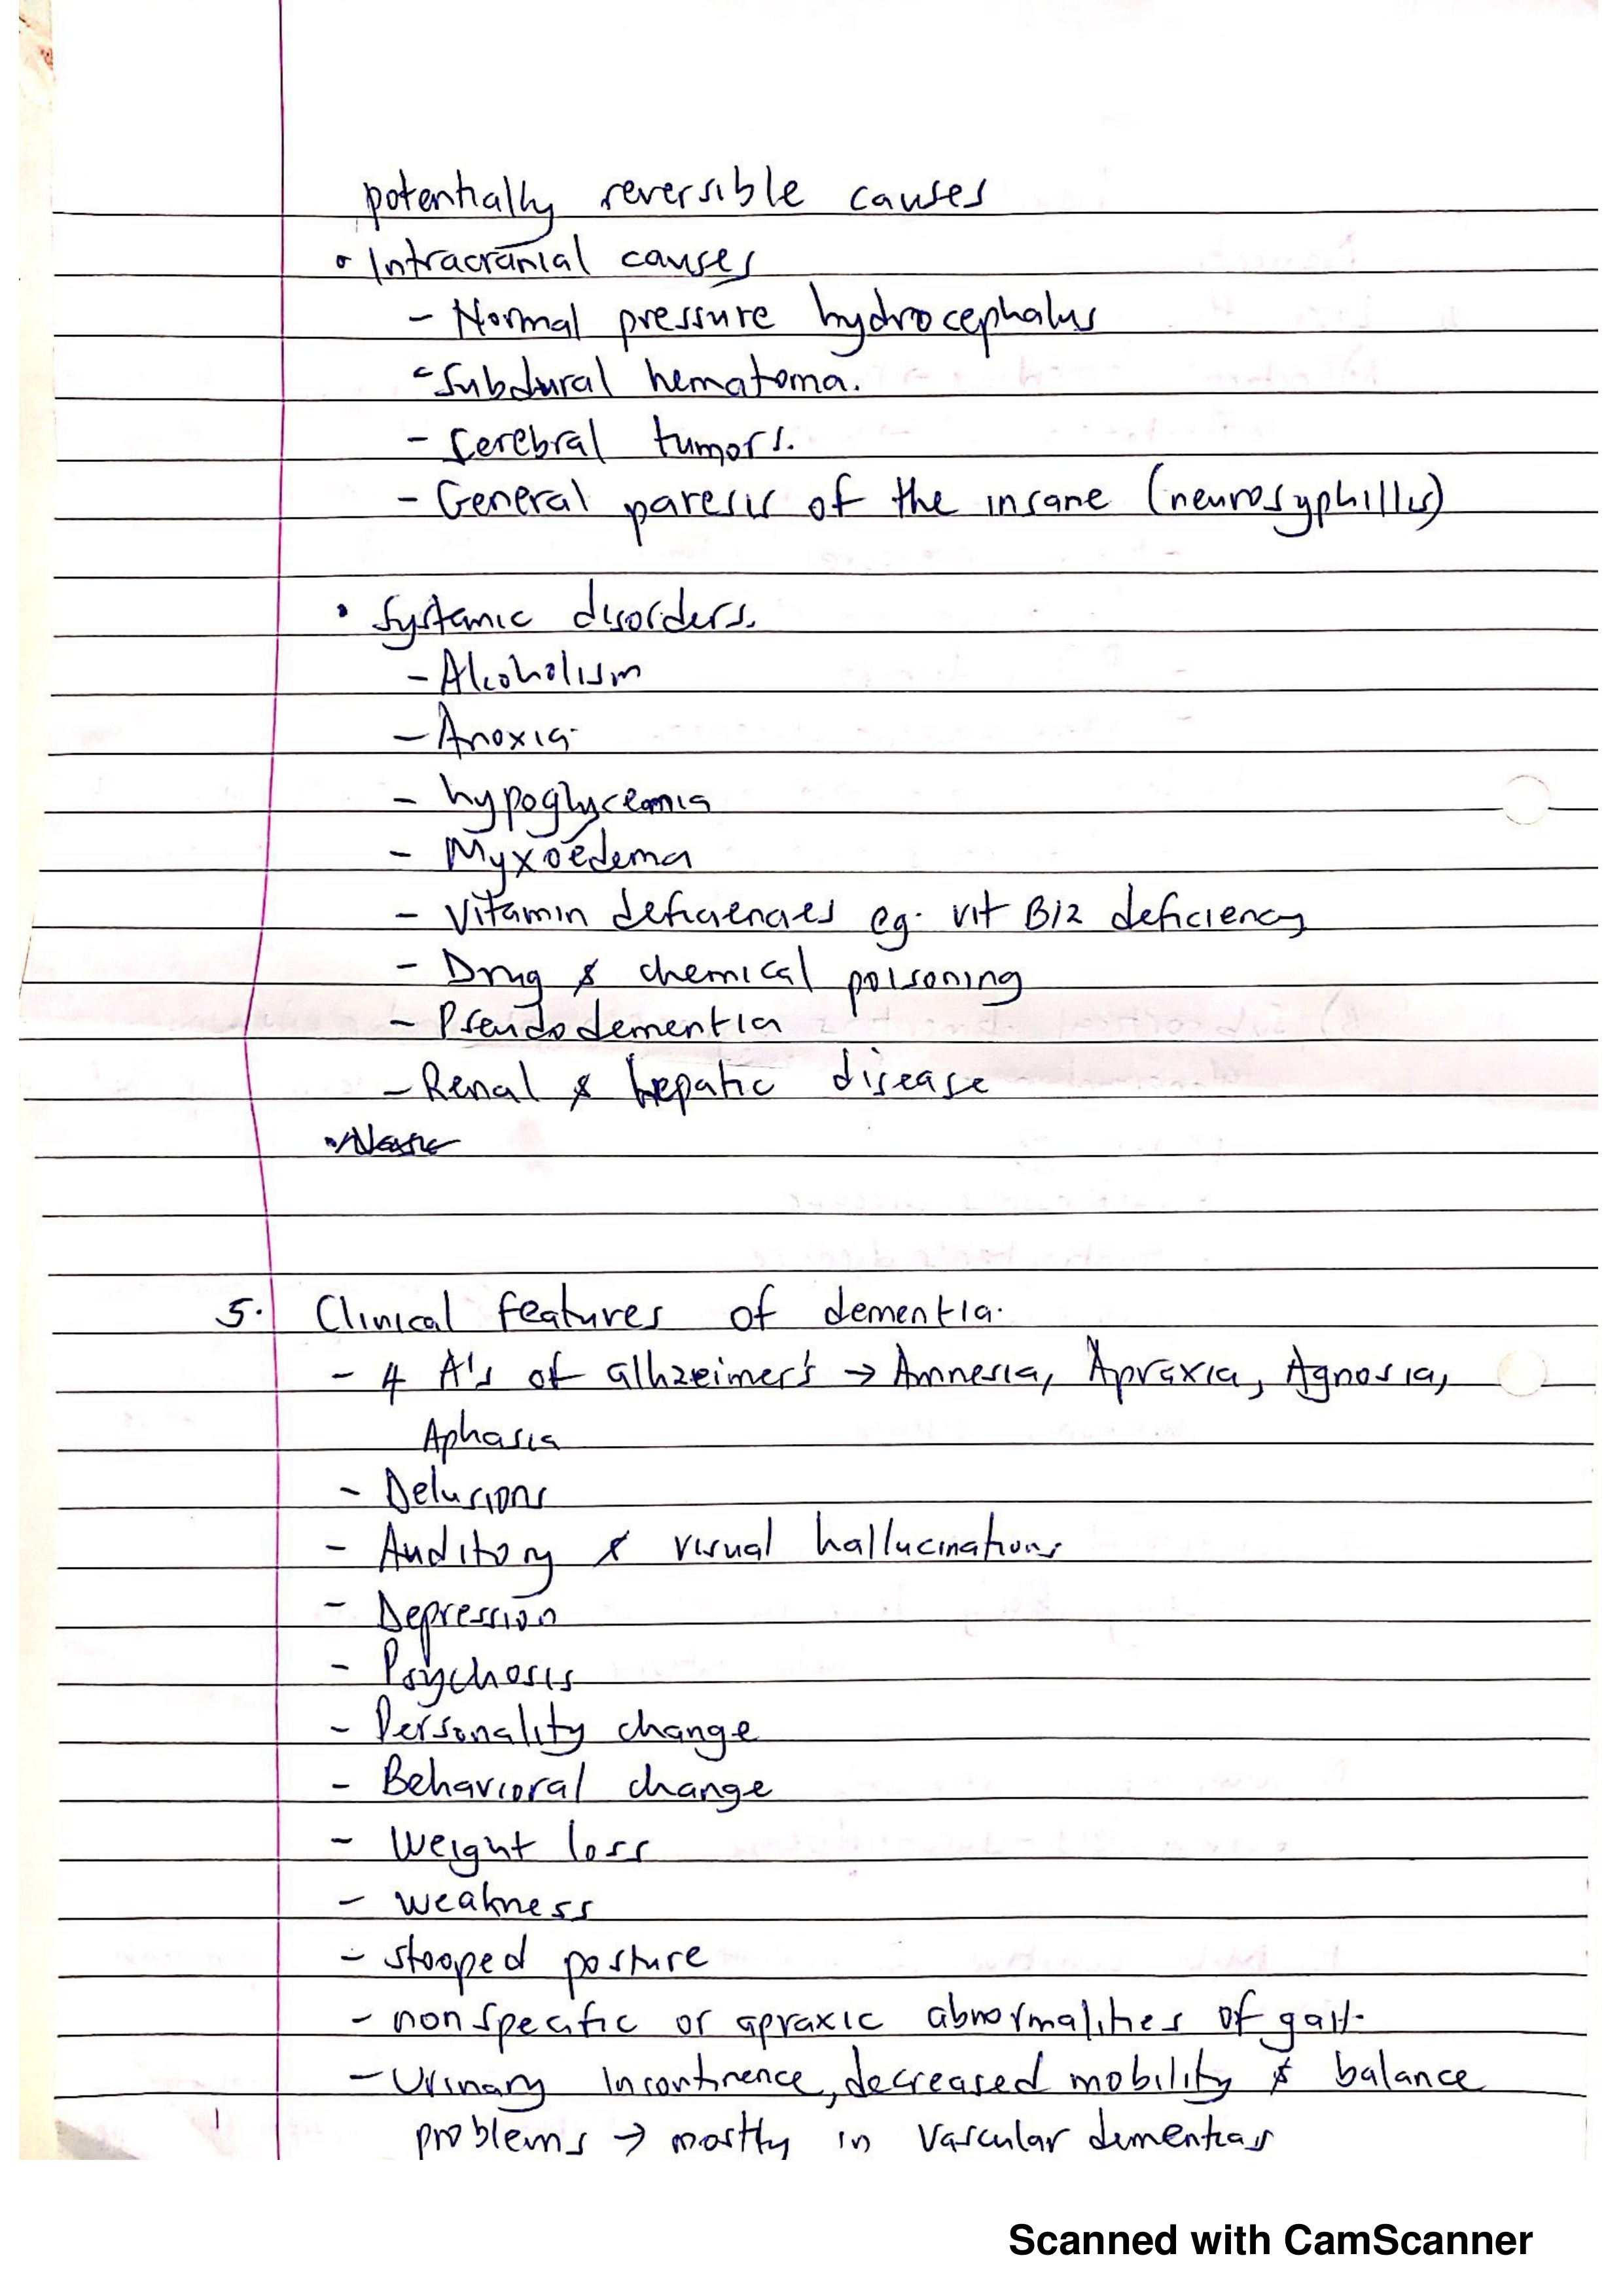 potentially reversible causes
• Intracranial causes
- Normal pressure hydrocephalus
- Subdural hematoma.
- Cerebral tumors.
- General paresis of the insane (neurosyphillis)
• Systemic disorders.
- Alcoholism
- Anoxia
- hypoglycemia
- Myxoedema
- Vitamin deficiencies eg. vit B12 deficiency
- Drug & chemical poisoning
- Pseudodementia
- Renal & hepatic disease
5. Clinical features of dementia.
- 4 A's of alhzeimer's → Amnesia, Apraxia, Agnosia,
Aphasia
- Delusions
- Auditory & visual hallucinations
- Depression
- Psychosis
- Personality change
- Behavioral change
- Weight loss
- weakness
- stooped posture
- non specific or apraxic abnormalities of gait.
- Urinary incontinence, decreased mobility & balance
problems → mostly in vascular dementias
Scanned with CamScanner